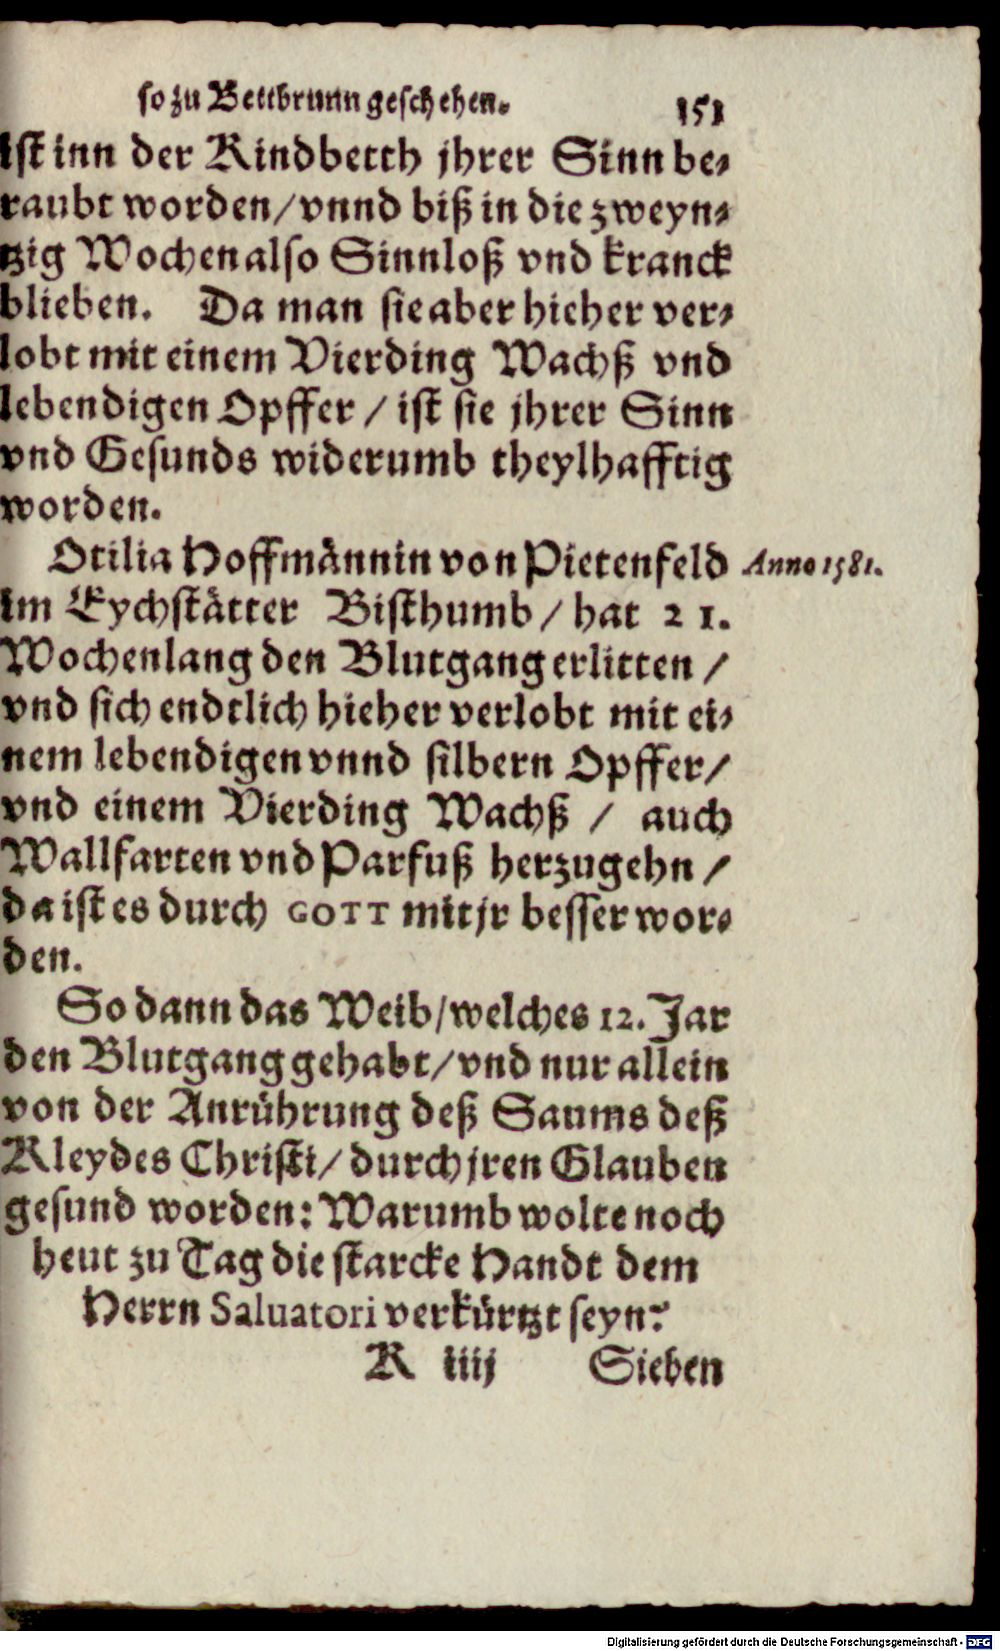 so zu Bettbrunn geschehen. 151
ist inn der Kindbetth jhrer Sinn be-
raubt worden/ vnnd biß in die zweyn-
tzig Wochen also Sinnloß vnd kranck
blieben. Da man sie aber hieher ver-
lobt mit einem Vierding Wachß vnd
lebendigen Opffer / ist sie jhrer Sinn
vnd Gesunds widerumb theylhafftig
worden.
Otilia Hoffmännin von Pietenfeld Anno 1581.
im Eychstätter Bisthumb / hat 21.
Wochenlang den Blutgang erlitten /
vnd sich endtlich hieher verlobt mit ei-
nem lebendigen vnnd silbern Opffer/
vnd einem Vierding Wachß / auch
Wallfarten vnd Parfuß herzugehn /
da ist es durch GOTT mit jr besser wor-
den.
So dann das Weib/ welches 12. Jar
den Blutgang gehabt/ vnd nur allein
von der Anrührung deß Saums deß
Kleydes Christi/ durch jren Glauben
gesund worden: Warumb wolte noch
heut zu Tag die starcke Handt dem
Herrn Saluatori verkürtzt seyn?
K iiij Sieben
Digitalisierung gefördert durch die Deutsche Forschungsgemeinschaft - DFG